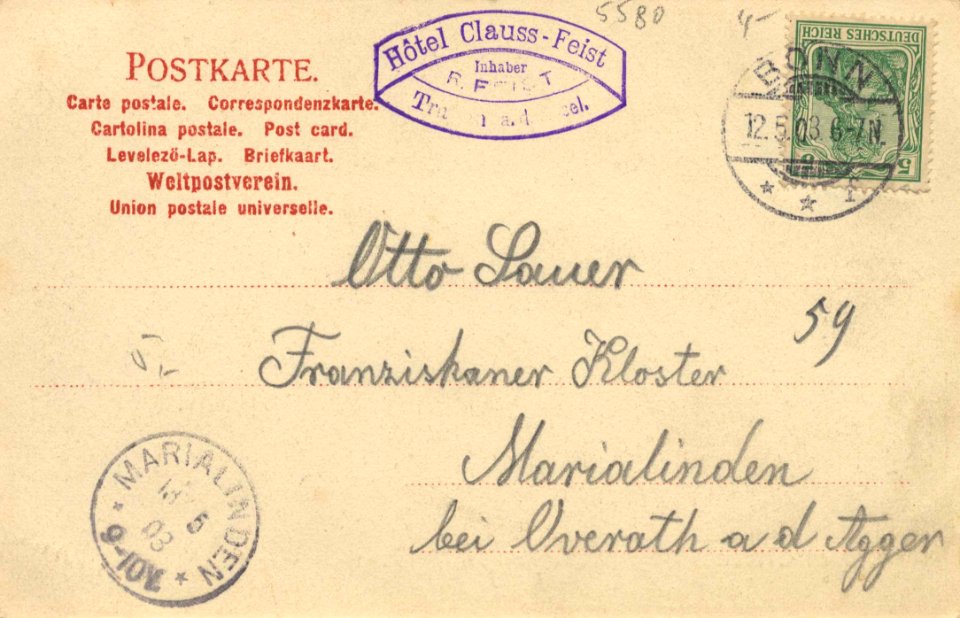 5580
4-
Hôtel Clauss-Feist
Inhaber
R. FEIST
a.d.
POSTKARTE.
Carte postale. Correspondenzkarte.
Cartolina postale. Post card.
Levelezö-Lap. Briefkaart.
Weltpostverein.
Union postale universelle.
DEUTSCHES REICH
5
BONN
12.5.03 6-7N.
* * 1
Otto Sauer
59
Franziskaner Kloster
Marialinden
bei Overath a d Agger
* MARIALINDEN *
5
03